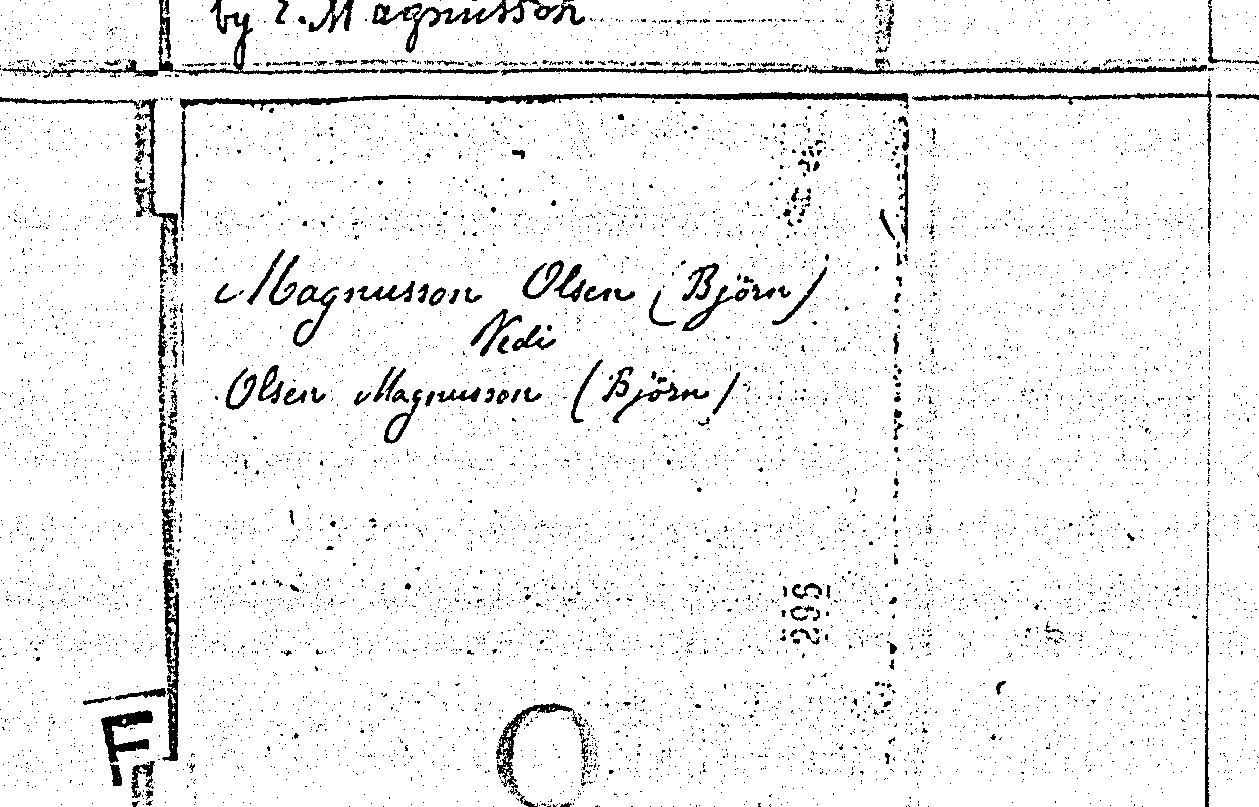 by E. Magnusson
Magnusson Olsen (Björn)
Vedi
Olsen Magnusson (Björn)
295